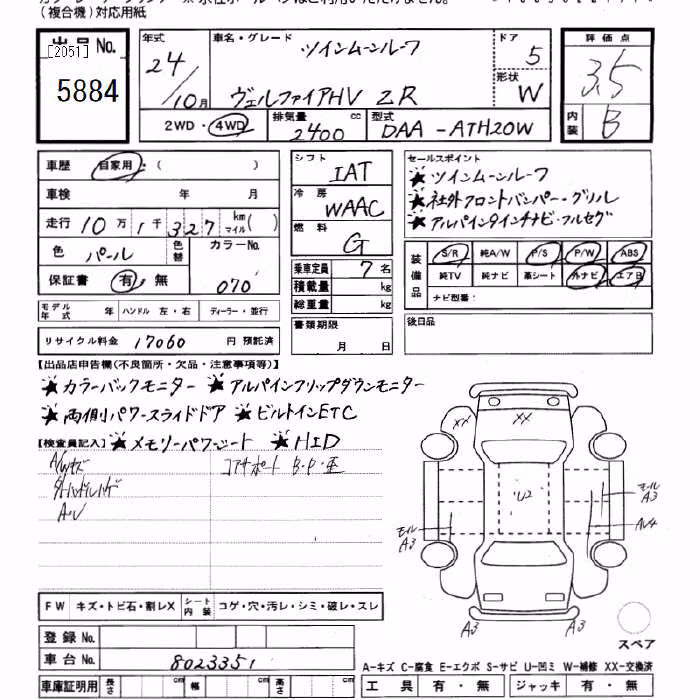 (複合機)対応用紙
出品No.
[2051]
5884
年式 24/10月
車名・グレード ツインムーンルーフ
ヴェルファイアHV ZR
ドア 5
形状 W
評価点 3.5
内装 B
2WD・4WD
排気量 2400 cc
型式 DAA-ATH20W
車歴 自家用:( )
車検 年 月
走行 10万1千327 km マイル( )
色 パール 色替 カラーNo. 070
保証書 有・無
シフト IAT
冷房 WAAC
燃料 G
乗車定員 7名
積載量 kg
総重量 kg
書類期限 月 日
セールスポイント
★ツインムーンルーフ
★社外フロントバンパー・グリル
★アルパイン9インチナビ・フルセグ
装備品 S/R 純A/W P/S P/W ABS
純TV 純ナビ 革シート 外ナビ エアB
ナビ型番:
後日品
モデル年式 年 ハンドル 左・右 ディーラー・並行
リサイクル料金 17060 円 預託済
【出品店申告欄(不良箇所・欠品・注意事項等)】
★カラーバックモニター ★アルパインフリップダウンモニター
★両側パワースライドドア ★ビルトインETC
【検査員記入】 ★メモリーパワーシート ★HID
A/Wキズ コアサポート B・P・歪
XX XX
U2
モール A3
AU4
モール A3
A3 A3
スペア
FW キズ・トビ石・割レX シート内装 コゲ・穴・汚レ・シミ・破レ・スレ
登録No.
車台No. 8023351
車庫証明用 長さ cm 幅 cm 高さ cm
A-キズ C-腐食 E-エクボ S-サビ U-凹ミ W-補修 XX-交換済
工具 有・無 ジャッキ 有・無